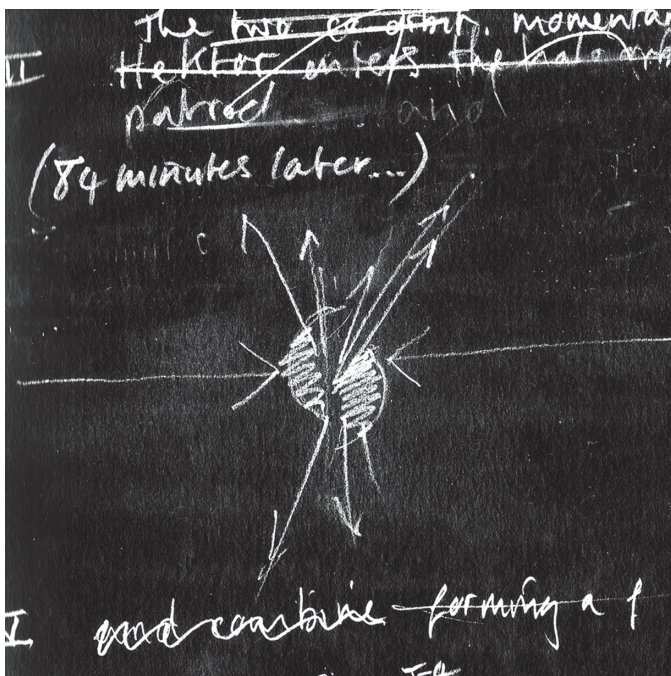 The two co orbit. momenta
II Hektor enters the halo
patrod and
(84 minutes later...)
and combine forming a f